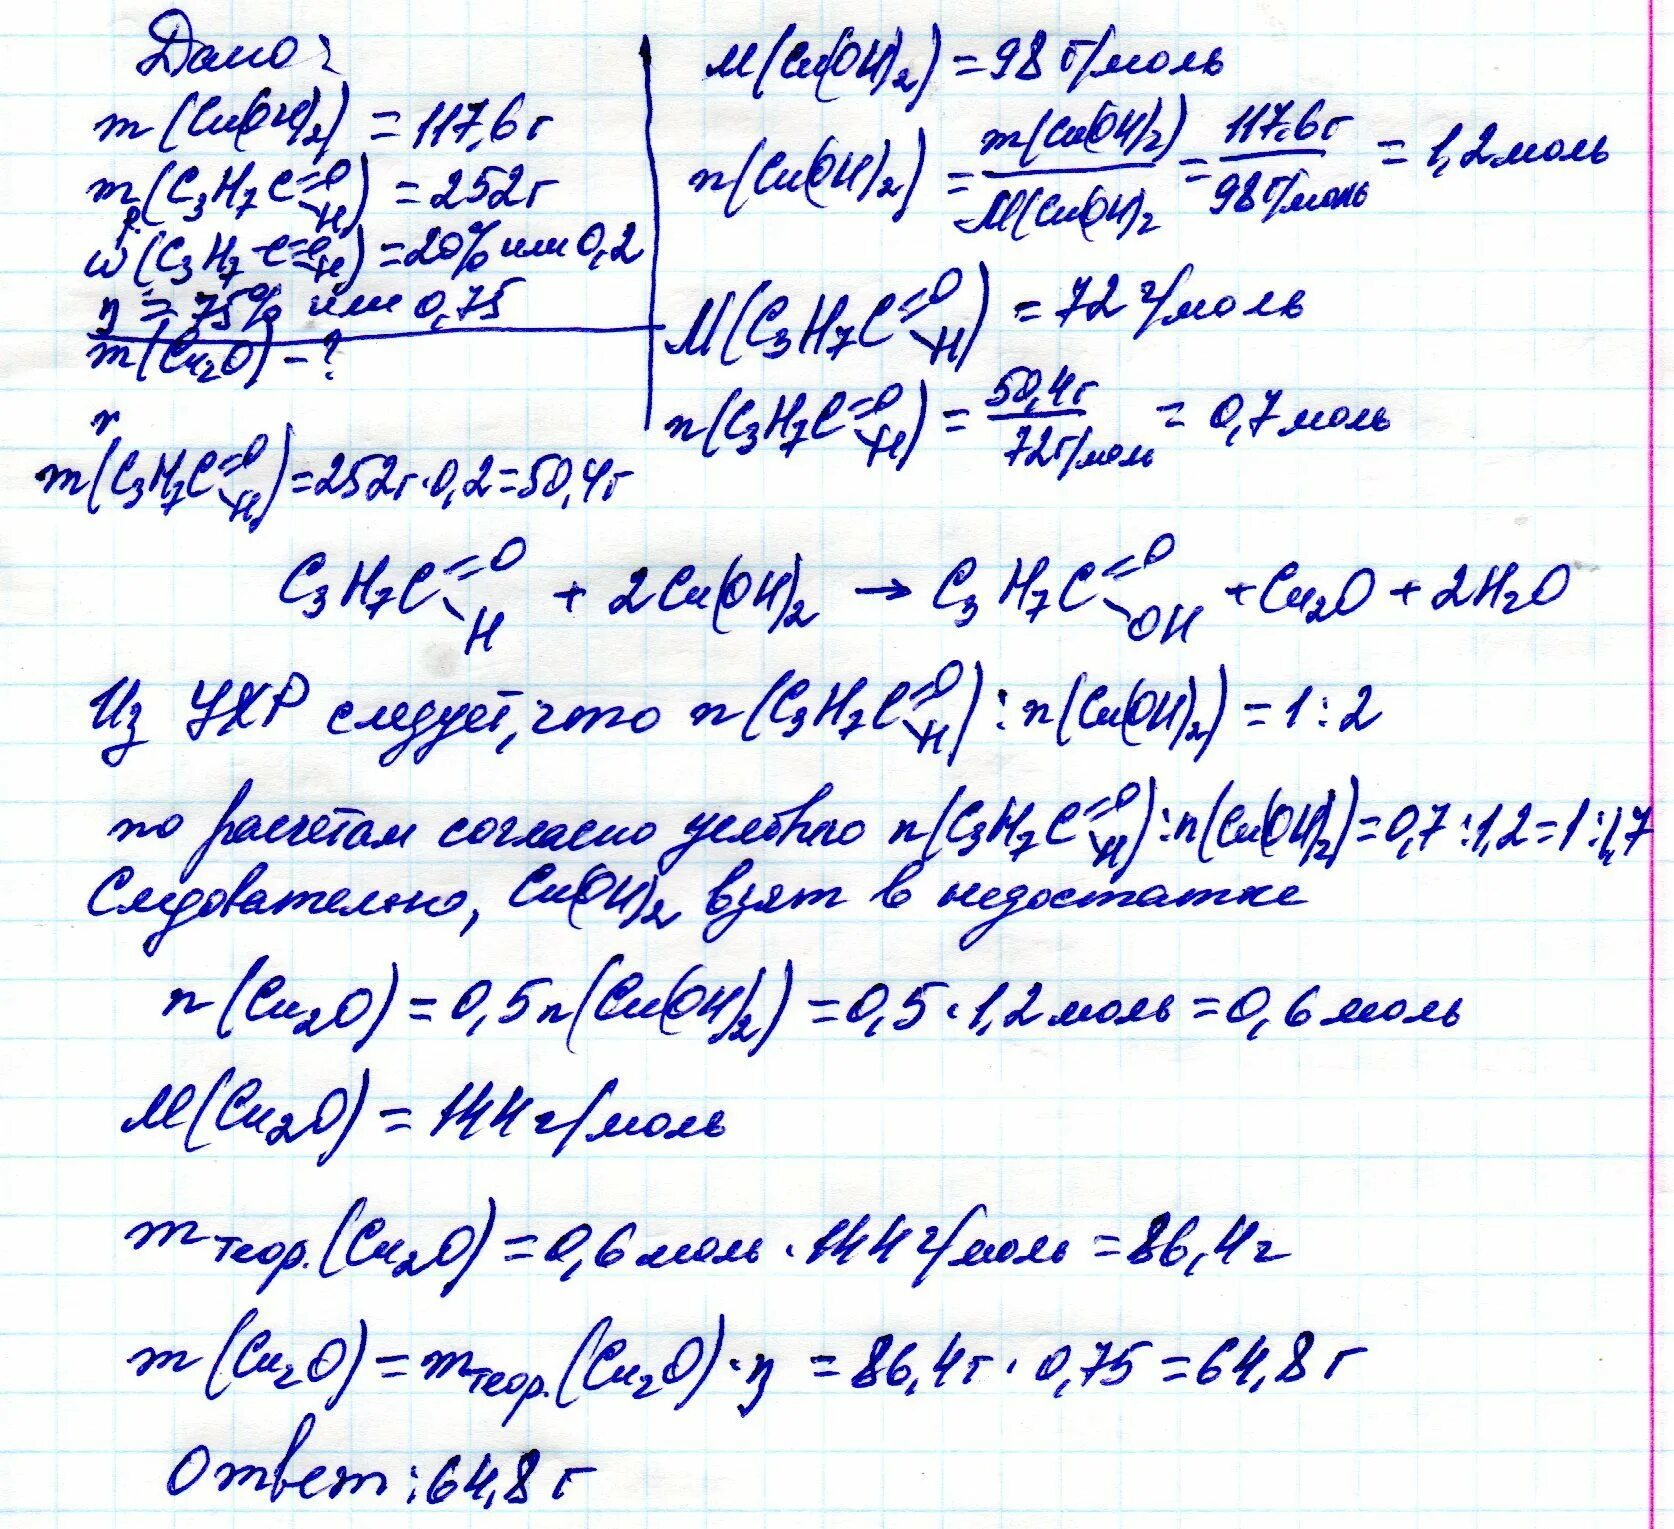 Дано:
m(Cu(OH)₂) = 117,6 г
mр.(C₃H₇C=O–H) = 252 г
ω(C₃H₇-C=O–H) = 20% или 0,2
η = 75% или 0,75
m(Cu₂O) - ?
m(C₃H₇C=O–H) = 252 г · 0,2 = 50,4 г
M(Cu(OH)₂) = 98 г/моль
n(Cu(OH)₂) = m(Cu(OH)₂) / M(Cu(OH)₂ = 117,6 г / 98 г/моль = 1,2 моль
M(C₃H₇C=O–H) = 72 г/моль
n(C₃H₇C=O–H) = 50,4 г / 72 г/моль = 0,7 моль
C₃H₇C=O–H + 2Cu(OH)₂ → C₃H₇C=O–OH + Cu₂O + 2H₂O
Из УХР следует, что n(C₃H₇C=O–H) : n(Cu(OH)₂) = 1 : 2
по расчетам согласно n(C₃H₇C=O–H) : n(Cu(OH)₂) = 0,7 : 1,2 = 1 : 1,7
Следовательно, Cu(OH)₂ взят в недостатке
n(Cu₂O) = 0,5n(Cu(OH)₂) = 0,5 · 1,2 моль = 0,6 моль
M(Cu₂O) = 144 г/моль
mтеор.(Cu₂O) = 0,6 моль · 144 г/моль = 86,4 г
m(Cu₂O) = mтеор.(Cu₂O) · η = 86,4 г · 0,75 = 64,8 г
Ответ: 64,8 г